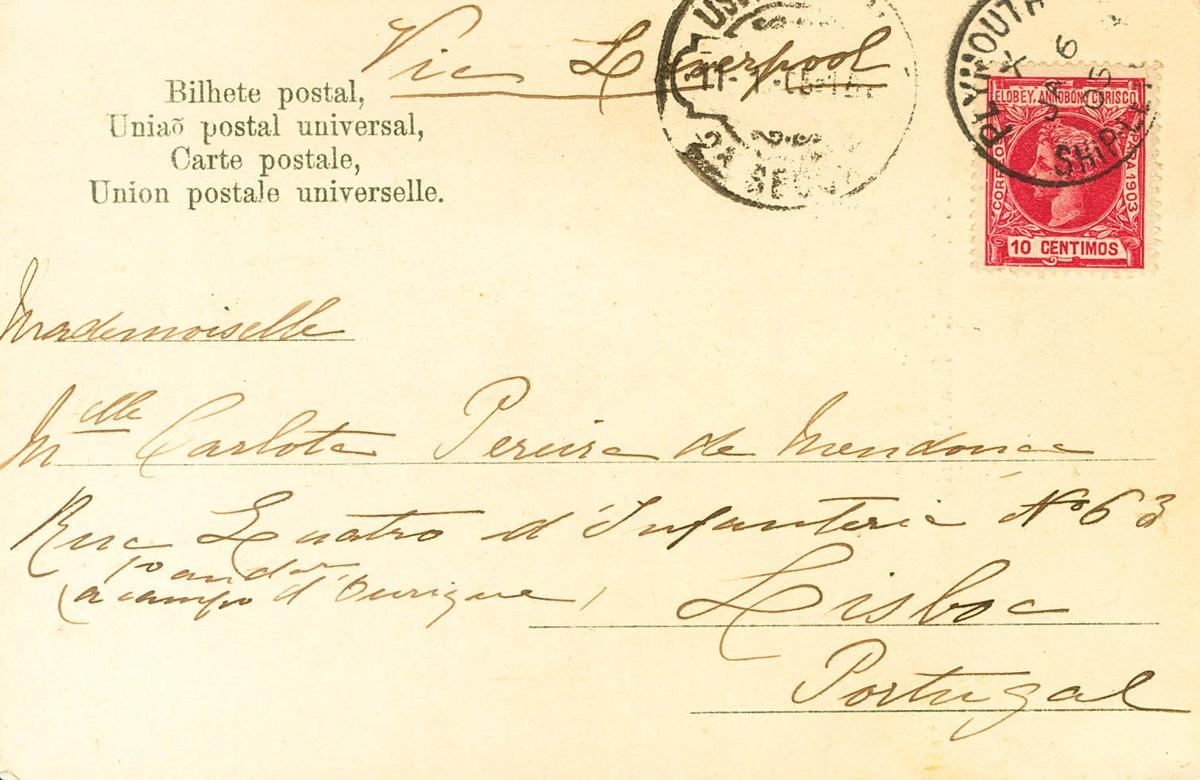 Via Liverpool
Bilhete postal,
Uniaõ postal universal,
Carte postale,
Union postale universelle.
11-1
2A SECÇ
PLYMOUTH
X
JA 6
05
SHIP LE
ELOBEY, ANNOBÓN Y CORISCO
CORREOS
ESPAÑA 1903
10 CENTIMOS
Mademoiselle
Melle Carlota Pereira de Mendonça
Rua Quatro d'Infanteria No 63
1o andar
(a campo d'Ourique)
Lisboa
Portugal